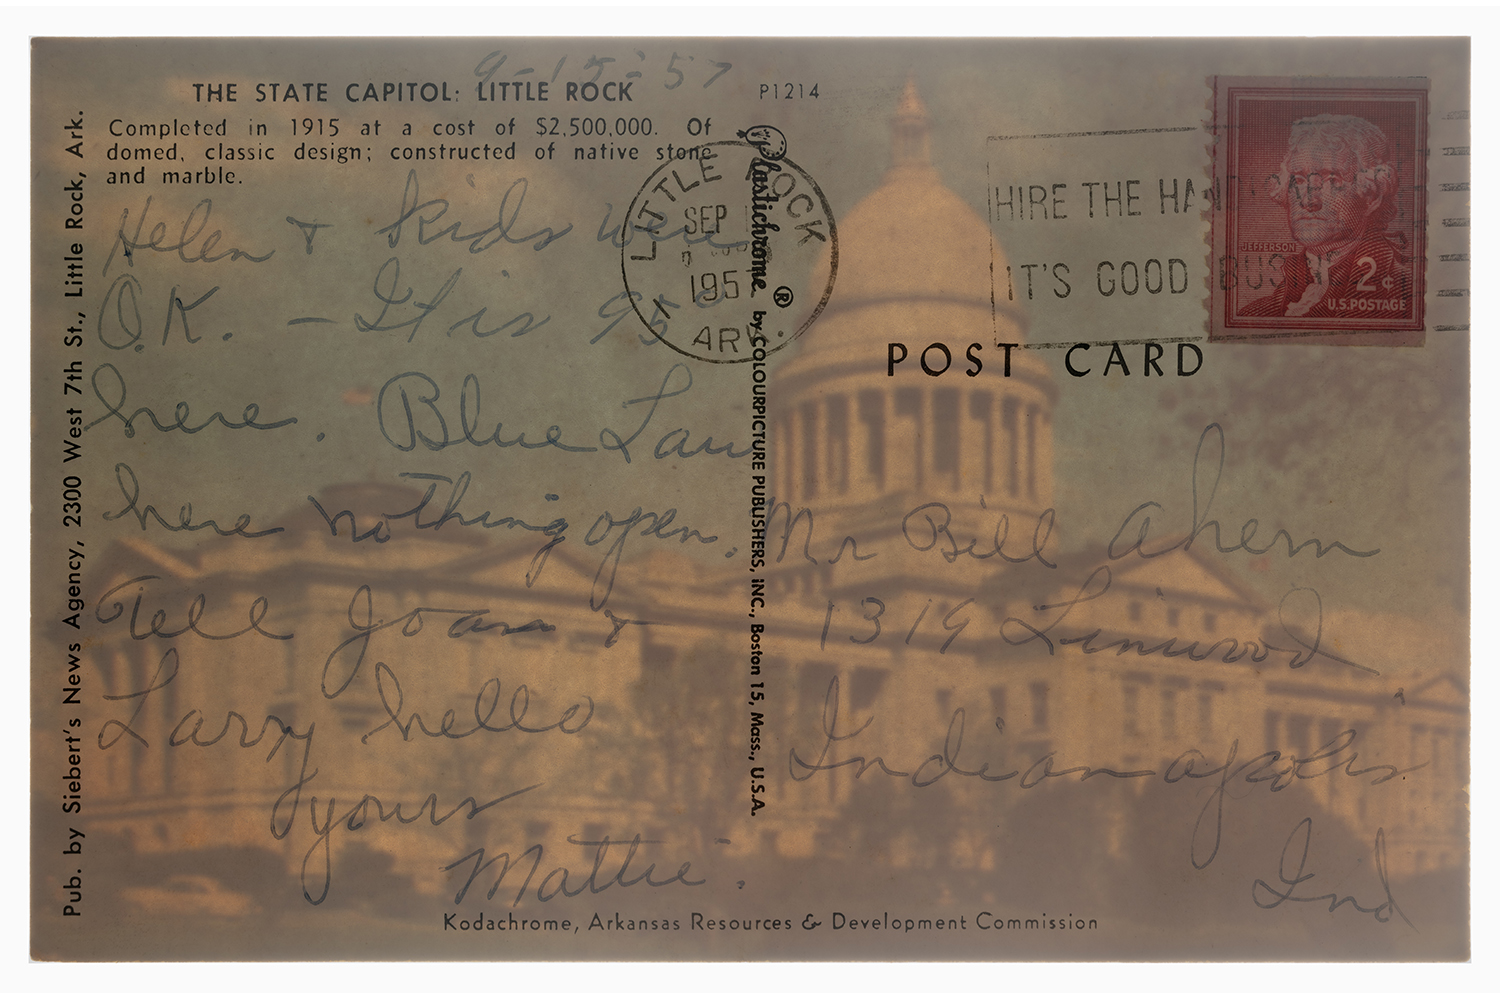 9-15-57
THE STATE CAPITOL: LITTLE ROCK
Completed in 1915 at a cost of $2,500,000. Of
domed, classic design; constructed of native stone
and marble.
Helen & kids were
O.K. – It is 95°
here. Blue Law
here nothing open.
Tell Joan &
Larry hello
yours
Mattie.
Pub. by Siebert's News Agency, 2300 West 7th St., Little Rock, Ark.
P1214
Plastichrome ® by COLOURPICTURE PUBLISHERS, INC., Boston 15, Mass., U.S.A.
LITTLE ROCK
SEP
195
ARK.
HIRE THE HANDICAPPED
IT'S GOOD BUSINESS
JEFFERSON
2¢
U.S. POSTAGE
POST CARD
Mr Bill Ahern
1319 Linwood
Indianapolis
Ind
Kodachrome, Arkansas Resources & Development Commission